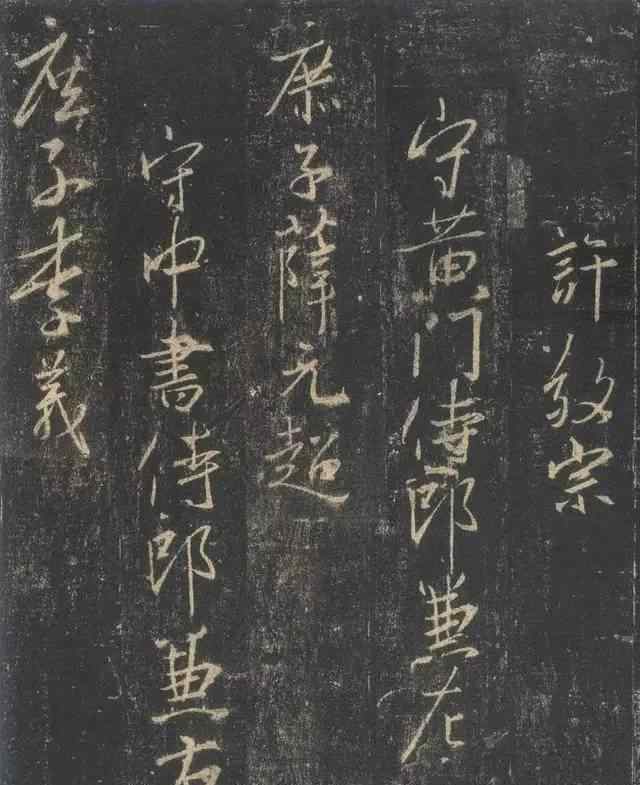 許敬宗
守黄门侍郎兼左
庶子薛元超
守中書侍郎兼右
庶子李義